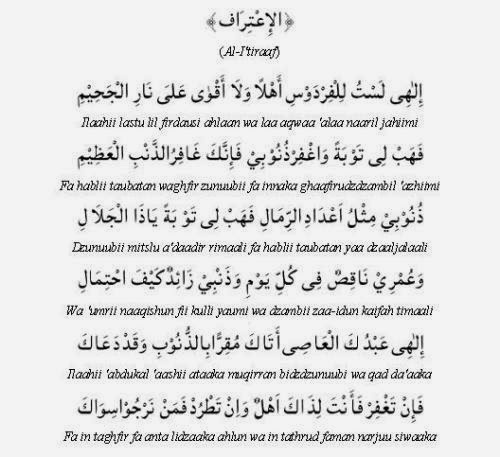 ﴿الإِعْتِرَاف﴾
(Al-I'tiraaf)
إِلٰهِى لَسْتُ لِلْفِرْدَوْسِ أَهْلًا وَلَا أَقْوٰى عَلَى نَارِ الْجَحِيْمِ
Ilaahii lastu lil firdausi ahlaan wa laa aqwaa 'alaa naaril jahiimi
فَهَبْ لِى تَوْبَةً وَاغْفِرْذُنُوْبِيْ فَإِنَّكَ غَافِرُالذَّنْبِ الْعَظِيْمِ
Fa hablii taubatan waghfir zunuubii fa innaka ghaafirudzdzambil 'azhiimi
ذُنُوْبِيْ مِثْلُ اَعْدَادِ الرِّمَالِ فَهَبْ لِى تَوْبَةً يَاذَا الْجَلَالِ
Dzunuubii mitslu a'daadir rimaali fa hablii taubatan yaa dzaaljalaali
وَعُمْرِيْ نَاقِصٌ فِى كُلِّ يَوْمٍ وَذَنْبِيْ زَائِدٌ كَيْفَ احْتِمَالِ
Wa 'umrii naaqishun fii kulli yaumi wa dzambii zaa-idun kaifah timaali
إِلٰهِى عَبْدُكَ الْعَاصِى أَتَاكَ مُقِرًّا بِالذُّنُوْبِ وَقَدْ دَعَاكَ
Ilaahii 'abdukal 'aashii ataaka muqirran bidzdzunuubi wa qad da'aaka
فَإِنْ تَغْفِرْ فَأَنْتَ لِذَاكَ أَهْلٌ وَاِنْ تَطْرُدْ فَمَنْ نَرْجُوْاسِوَاكَ
Fa in taghfir fa anta lidzaaka ahlun wa in tathrud faman narjuu siwaaka